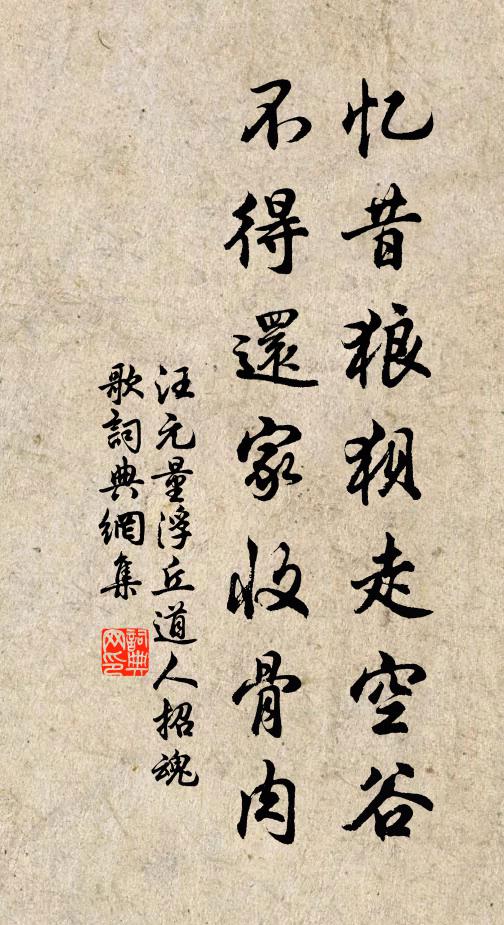 忆昔狼狽走空谷
不得還家收骨肉
汪元量浮丘道人招魂
歌詞典網集
詞典网印